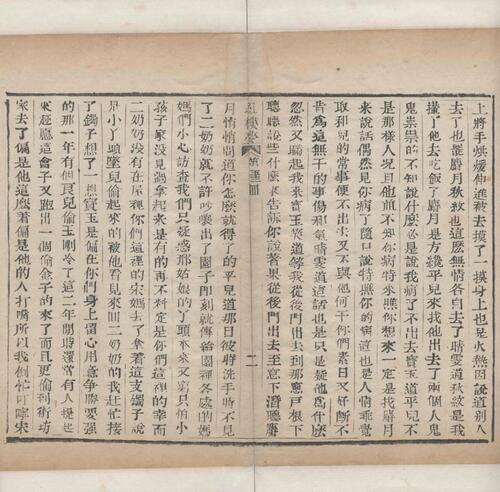 上將手烘煖伸進被去摸了一摸身上也是火熱因說道別人
去了也罷麝月秋紋也這麼無情各自去了晴雯道秋紋是我
攆了他去吃飯了麝月是方纔平兒來找他出去了兩個人鬼
鬼祟祟的不知說什麼必是說我病了不出去寶玉道平兒不
是那樣人况且他並不知你病特來瞧你想來一定是找麝月
來說話偶然見你病了隨口說特瞧你的病這也是人情乖覺
取和兒的常事便不出去又不與他何干你們素日又好斷不
肯爲這無干的事傷和氣晴雯道這話也是只是疑他爲什麼
忽然又瞞起我來寶玉笑道等我從後門出去到那窻戶根下
聽聽說些什麼來告訴你說着果從後門出去至窻下潛聽麝
紅樓夢 第 回 二
月悄悄問道你怎麼就得了的平兒道那日彼時洗手時不見
了二奶奶就不許吵嚷出了園子卽刻就傳給園裡各處的媽
媽們小心訪查我們只疑惑那姑娘的丫頭本來又窮只怕小
孩子家沒見過拿起來是有的再不料定是你們這裡的幸而
二奶奶沒有在屋裡你們這裡的宋媽去了拿着這支鐲子說
是小丫頭墜兒偷起來的被他看見來囘二奶奶的我赶忙接
了鐲子想了一想寶玉是偏在你們身上留心用意爭勝要强
的那一年有個良兒偷玉剛冷了這二年閒時還常有人提起
來趁愿這會子又跑出一個偷金子的來了而且更偷到街坊
家去了偏是他這麼着偏是他的人打嘴所以我倒忙叮嚀宋